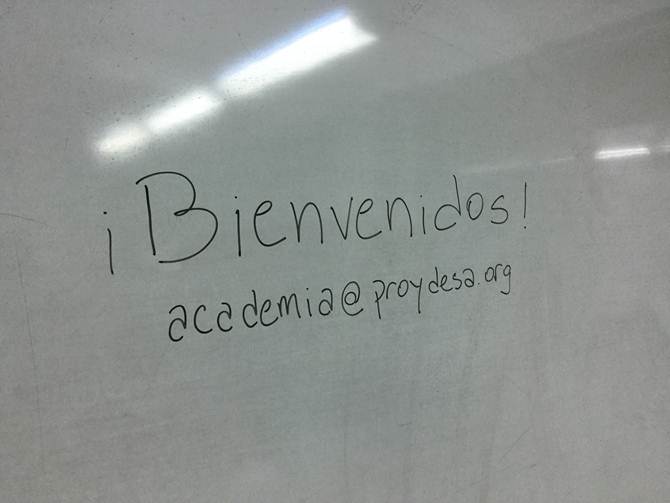 ¡Bienvenidos!
academia@proydesa.org